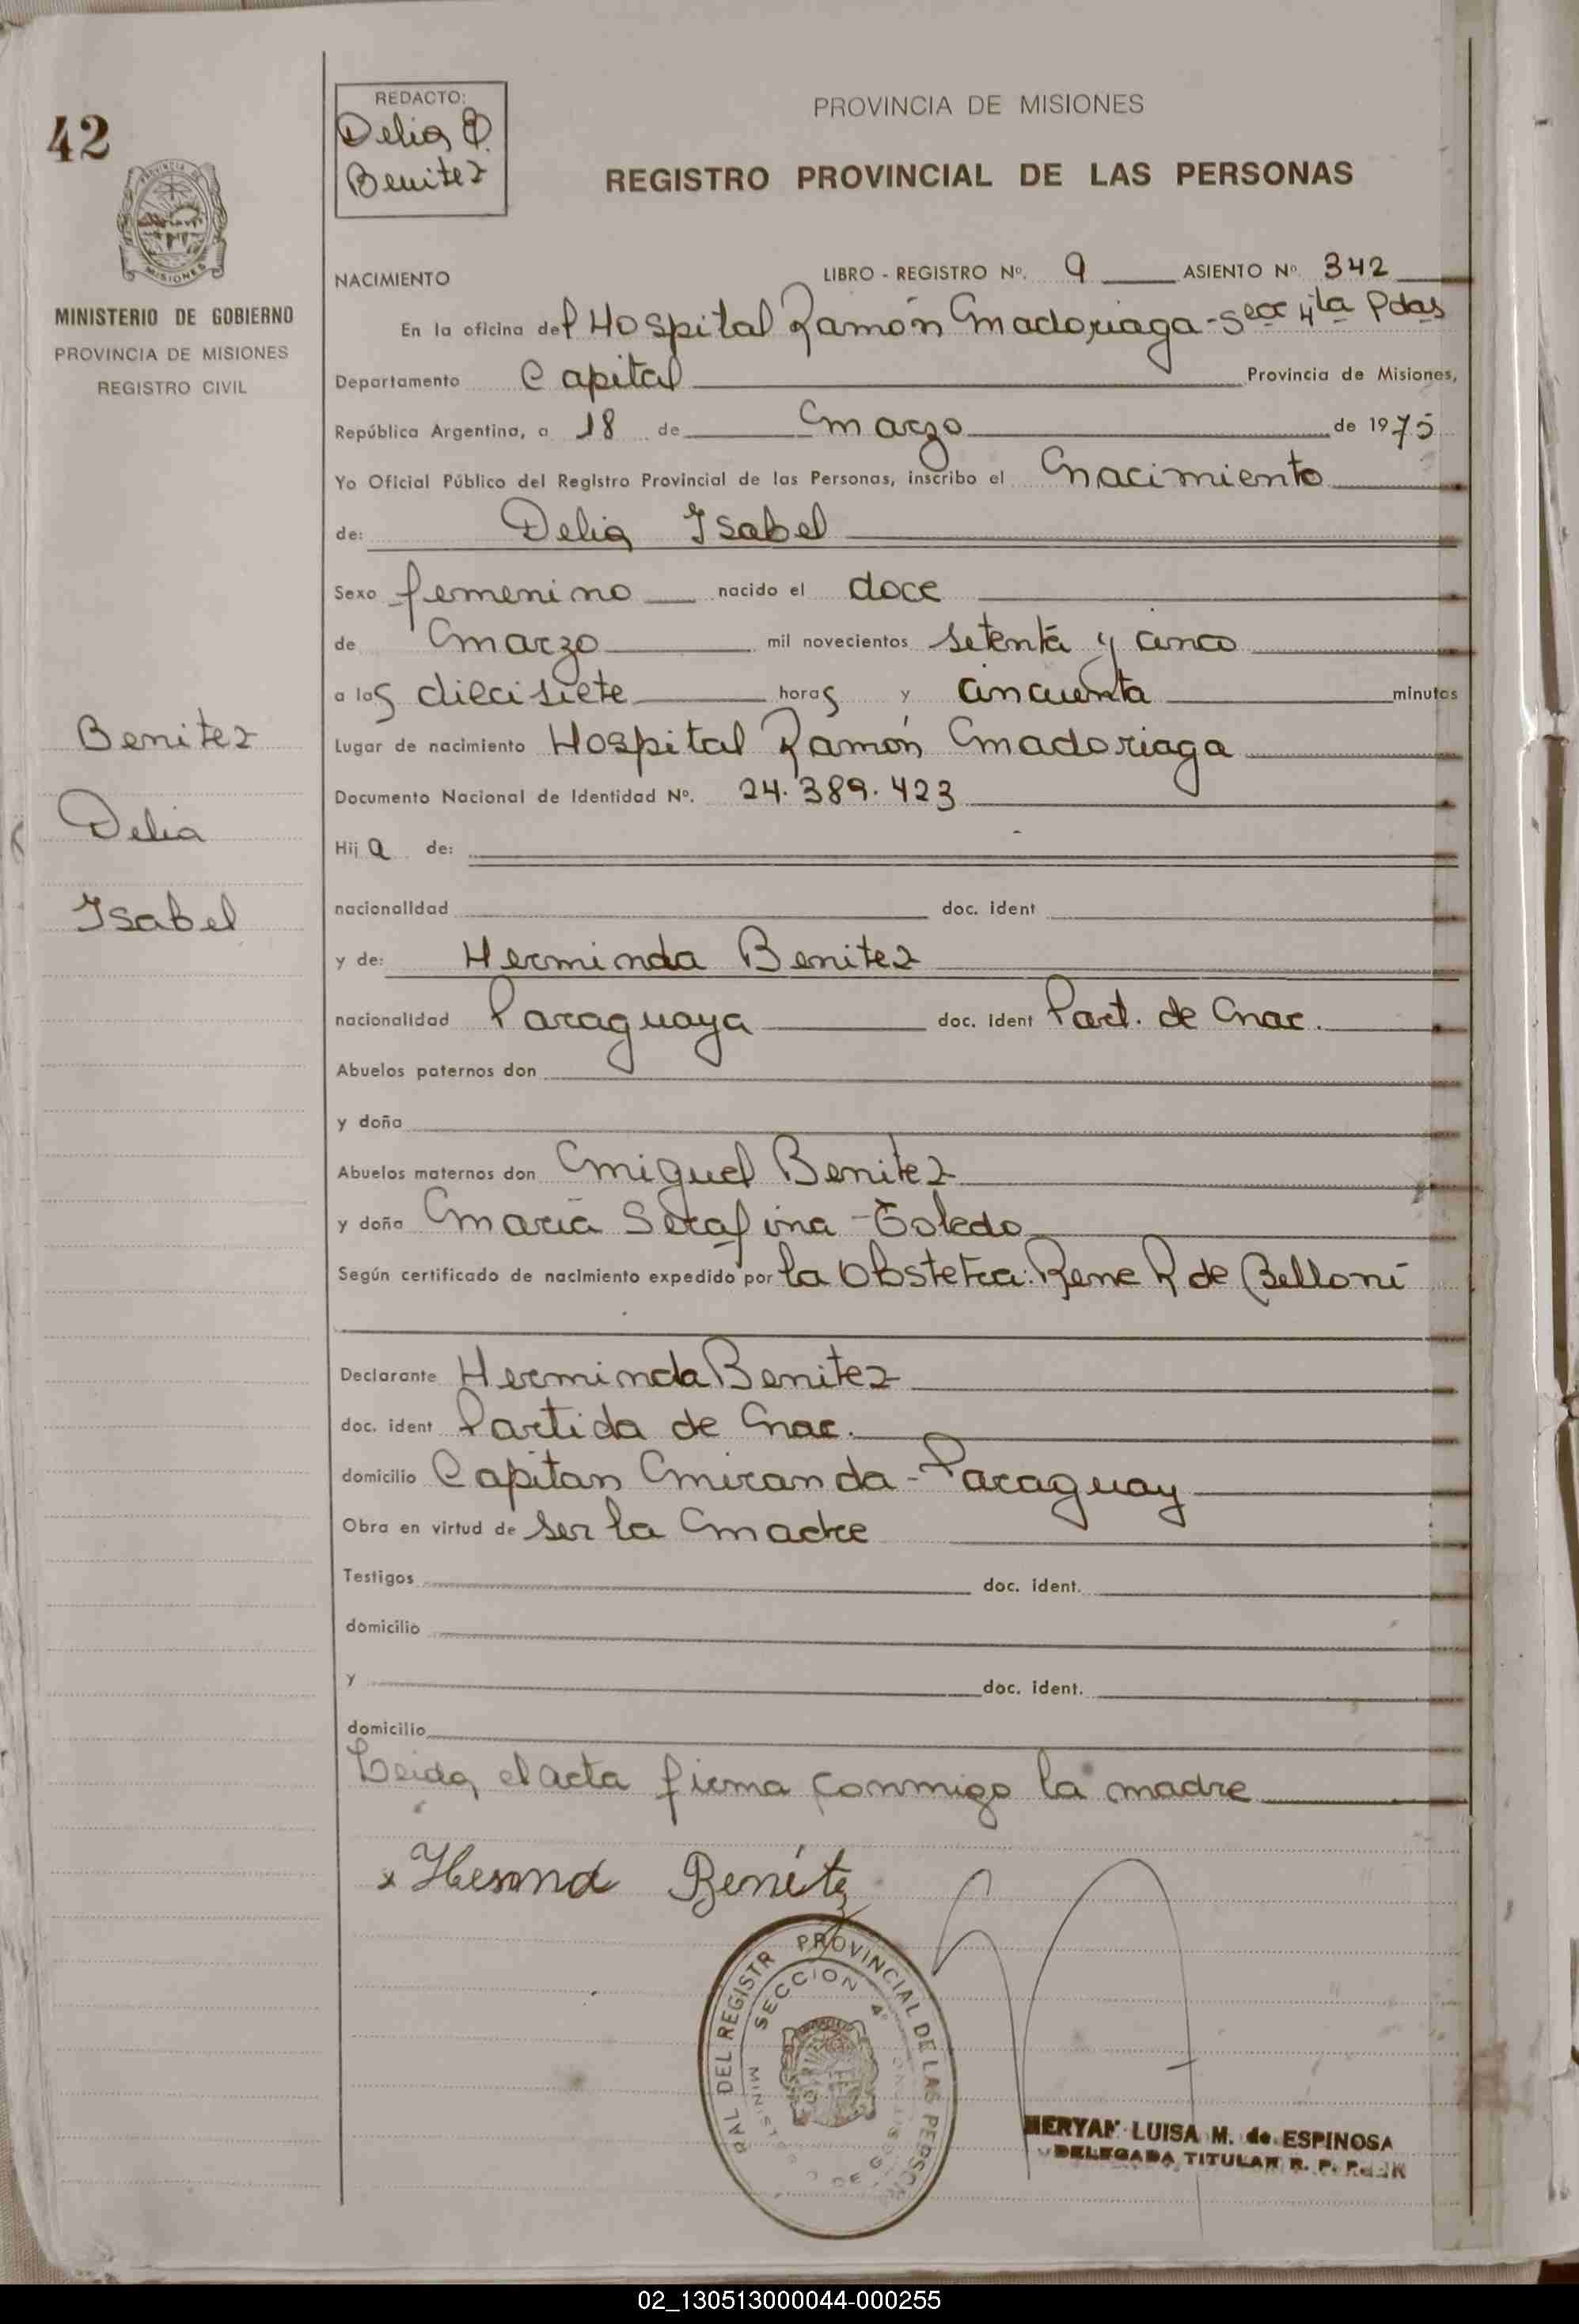 42
REDACTO:
Delia
Benitez
PROVINCIA DE MISIONES
REGISTRO PROVINCIAL DE LAS PERSONAS
MISIONES
MINISTERIO DE GOBIERNO
PROVINCIA DE MISIONES
REGISTRO CIVIL
NACIMIENTO LIBRO - REGISTRO Nº. 9 ASIENTO Nº 342
En la oficina del Hospital Ramón Madoriaga - Secc 4ta Pdas
Departamento Capital Provincia de Misiones,
República Argentina, a 18 de Marzo de 1975
Yo Oficial Público del Registro Provincial de las Personas, inscribo el Nacimiento
de: Delia Isabel
Sexo femenino nacido el doce
de Marzo mil novecientos setenta y cinco
a las diecisiete horas y cincuenta minutos
Benitez
Delia
Isabel
Lugar de nacimiento Hospital Ramón Madoriaga
Documento Nacional de Identidad Nº. 24.389.423
Hija de:
nacionalidad doc. ident
y de: Herminda Benitez
nacionalidad Paraguaya doc. ident Part. de Nac.
Abuelos paternos don
y doña
Abuelos maternos don Miguel Benitez
y doña Maria Serafina - Toledo
Según certificado de nacimiento expedido por la Obstetra: Rene R de Belloni
Declarante Herminda Benitez
doc. ident Partida de Nac.
domicilio Capitan Miranda - Paraguay
Obra en virtud de ser la Madre
Testigos doc. ident.
domicilio
y doc. ident.
domicilio
Leida el acta firma conmigo la madre
x Hesmnd Benítez
RAL DEL REGISTR PROVINCIAL DE LAS PERSON
SECCION 4º
MINISTE O DE GO
LUISA M. de ESPINOSA
DELEGADA TITULAR R. P. P.
02_130513000044-000255